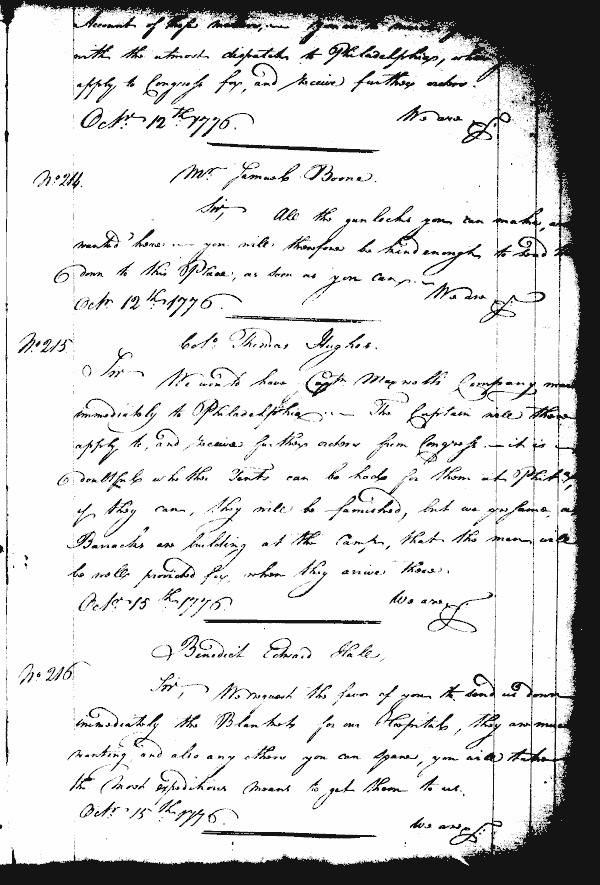 Account of these
with the utmost dispatch to Philadelphia, where
apply to Congress for, and receive further orders.
Octr. 12th 1776. We are &c.
No. 214. Mr. Samuel Boone.
Sir, All the gun locks you can make, are
wanted here — you will therefore be kind enough to send
down to this Place, as soon as you can. —
Octr. 12th 1776. We are &c.
No. 215 Colo. Thomas Hughes.
Sir We want to have Captn. Maxwells Company
immediately to Philadelphia. — The Captain will there
apply to, and receive further orders from Congress — it is
doubtful whether Tents can be had for them at Philada,
if they can, they will be furnished, but we presume as
Barracks are building at the Camp, that the men will
be well provided for, when they arrive there.
Octr. 15th 1776. We are &c.
Benedict Edward Hall,
No. 216
Sir, We request the favor of you to send us down
immediately the Blankets for our Hospitals, they are much
wanting and also any others you can spare, you will take
the most expeditious means to get them to us.
Octr. 15th 1776 We are &c.